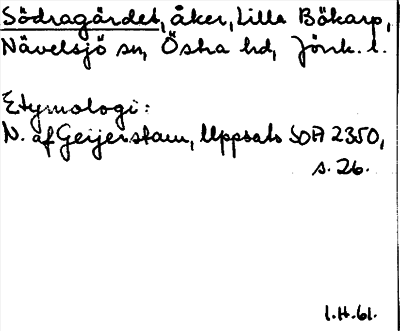 Södragärdet, åker, Lilla Bökarp,
Nävelsjö sn, Östra hd, Jönk. l.
Etymologi:
N. af Geijerstam, Uppsats SOA 2350,
s. 26.
1.H.61.